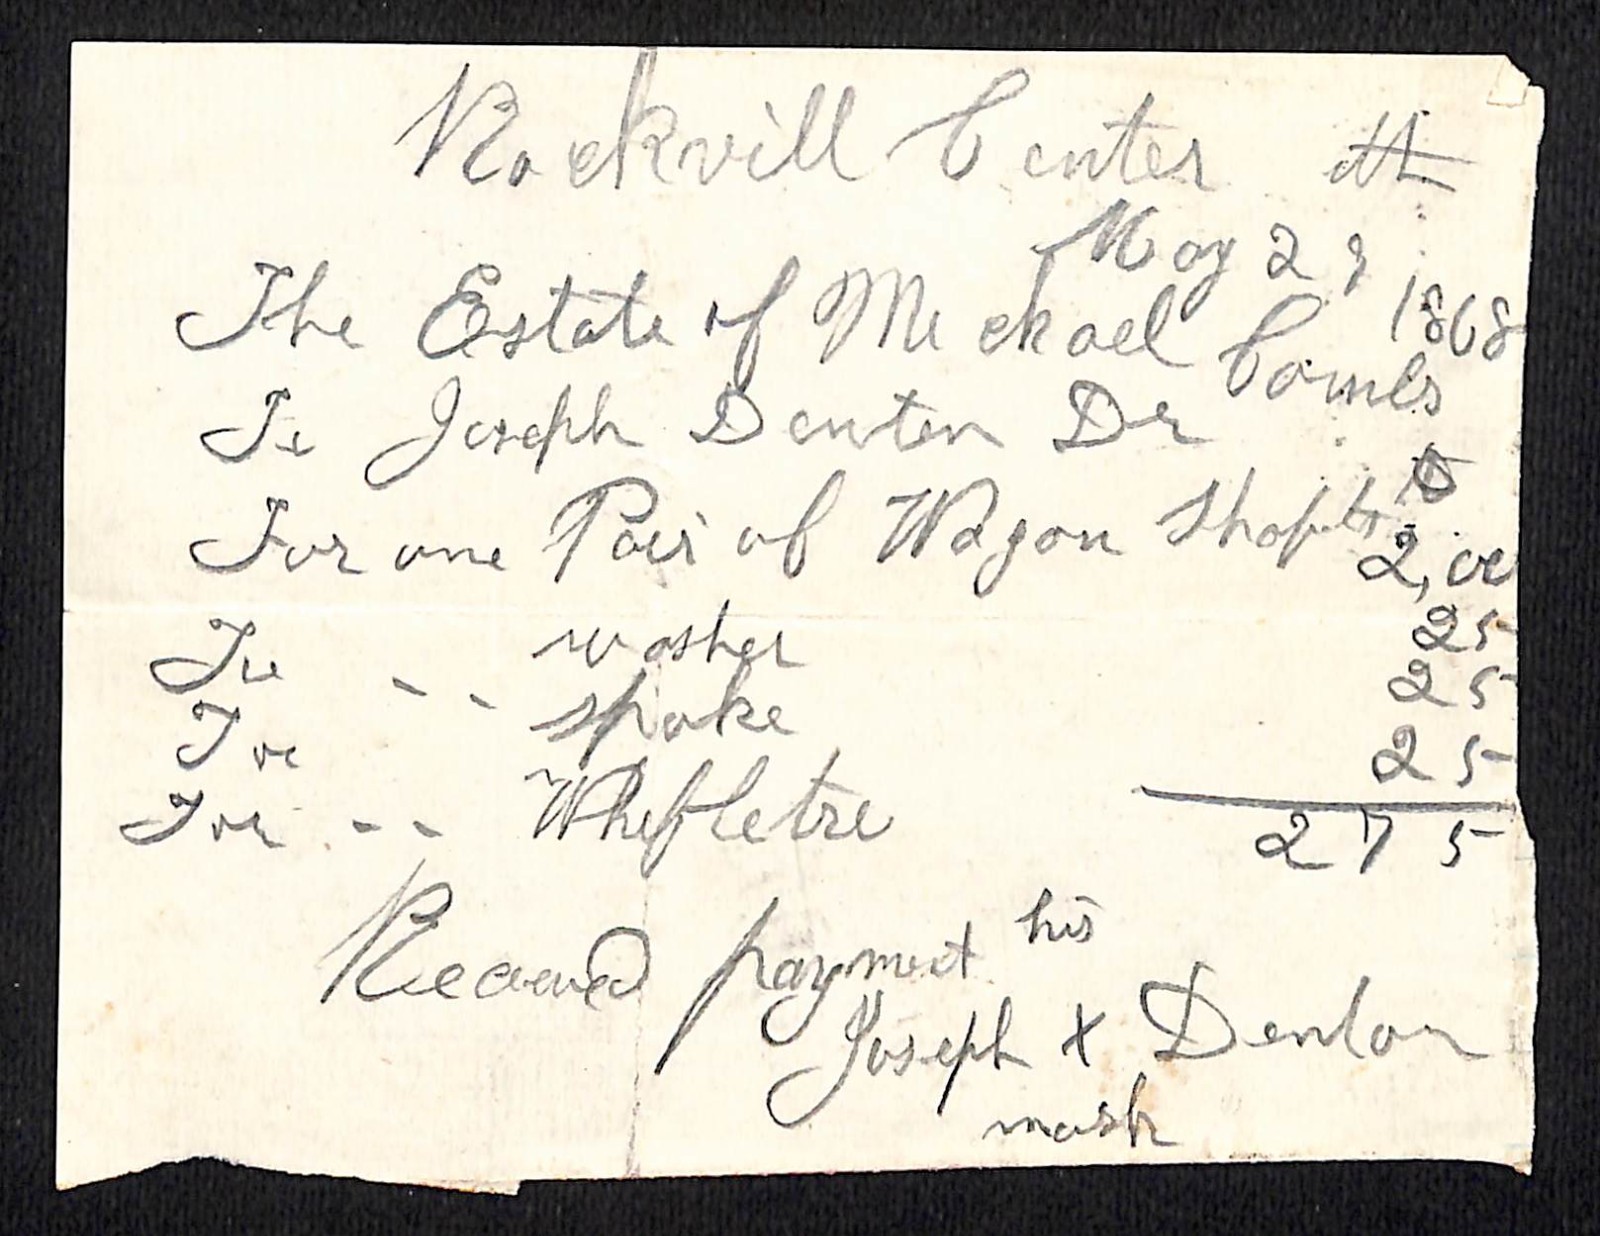 Rockvill Center
th
May 29 1868
The Estate of Mickael Combs
To Joseph Denton Dr
For one Pair of Wagon Shafts 2,00
For " " washer 25
For spoke 25
For " " Whefletre 25
2 75
Received payment his
Joseph X Denton
mark